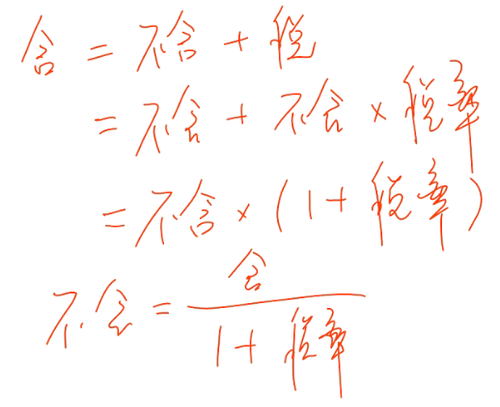 含 = 不含 + 税
= 不含 + 不含 × 税率
= 不含 × (1 + 税率)
不含 = 含 / 1 + 税率